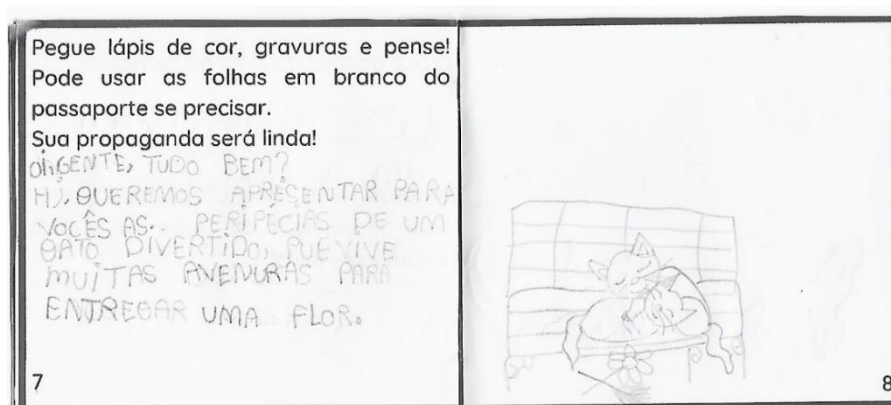 Pegue lápis de cor, gravuras e pense!
Pode usar as folhas em branco do
passaporte se precisar.
Sua propaganda será linda!
OI, GENTE, TUDO BEM?
HJ, QUEREMOS APRESENTAR PARA
VOCÊS AS.. PERIPÉCIAS DE UM
GATO DIVERTIDO, QUE VIVE
MUITAS AVENURAS PARA
ENTREGAR UMA FLOR.
7
8